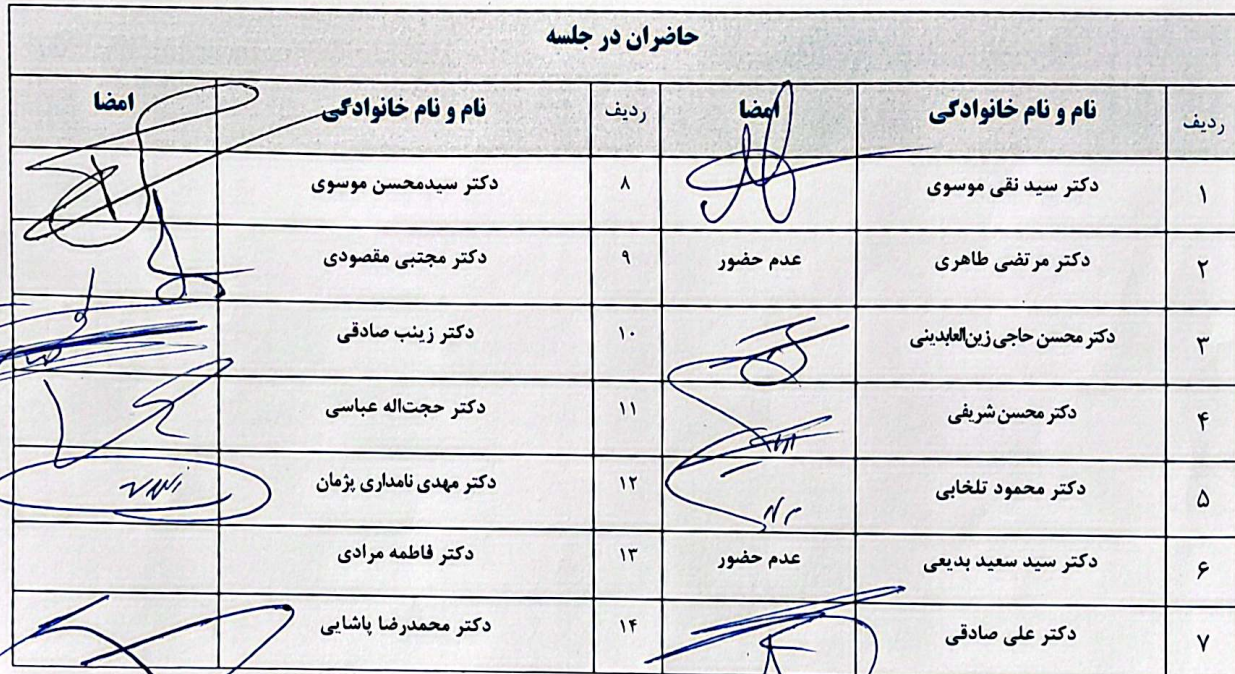 حاضران در جلسه
ردیف نام و نام خانوادگی امضا ردیف نام و نام خانوادگی امضا
۱ دکتر سید نقی موسوی ۸ دکتر سیدمحسن موسوی
۲ دکتر مرتضی طاهری عدم حضور ۹ دکتر مجتبی مقصودی
۳ دکتر محسن حاجی زین‌العابدینی ۱۰ دکتر زینب صادقی
۴ دکتر محسن شریفی ۱۱ دکتر حجت‌اله عباسی
۵ دکتر محمود تلخابی ۱۲ دکتر مهدی نامداری پژمان
۶ دکتر سید سعید بدیعی عدم حضور ۱۳ دکتر فاطمه مرادی
۷ دکتر علی صادقی ۱۴ دکتر محمدرضا پاشایی